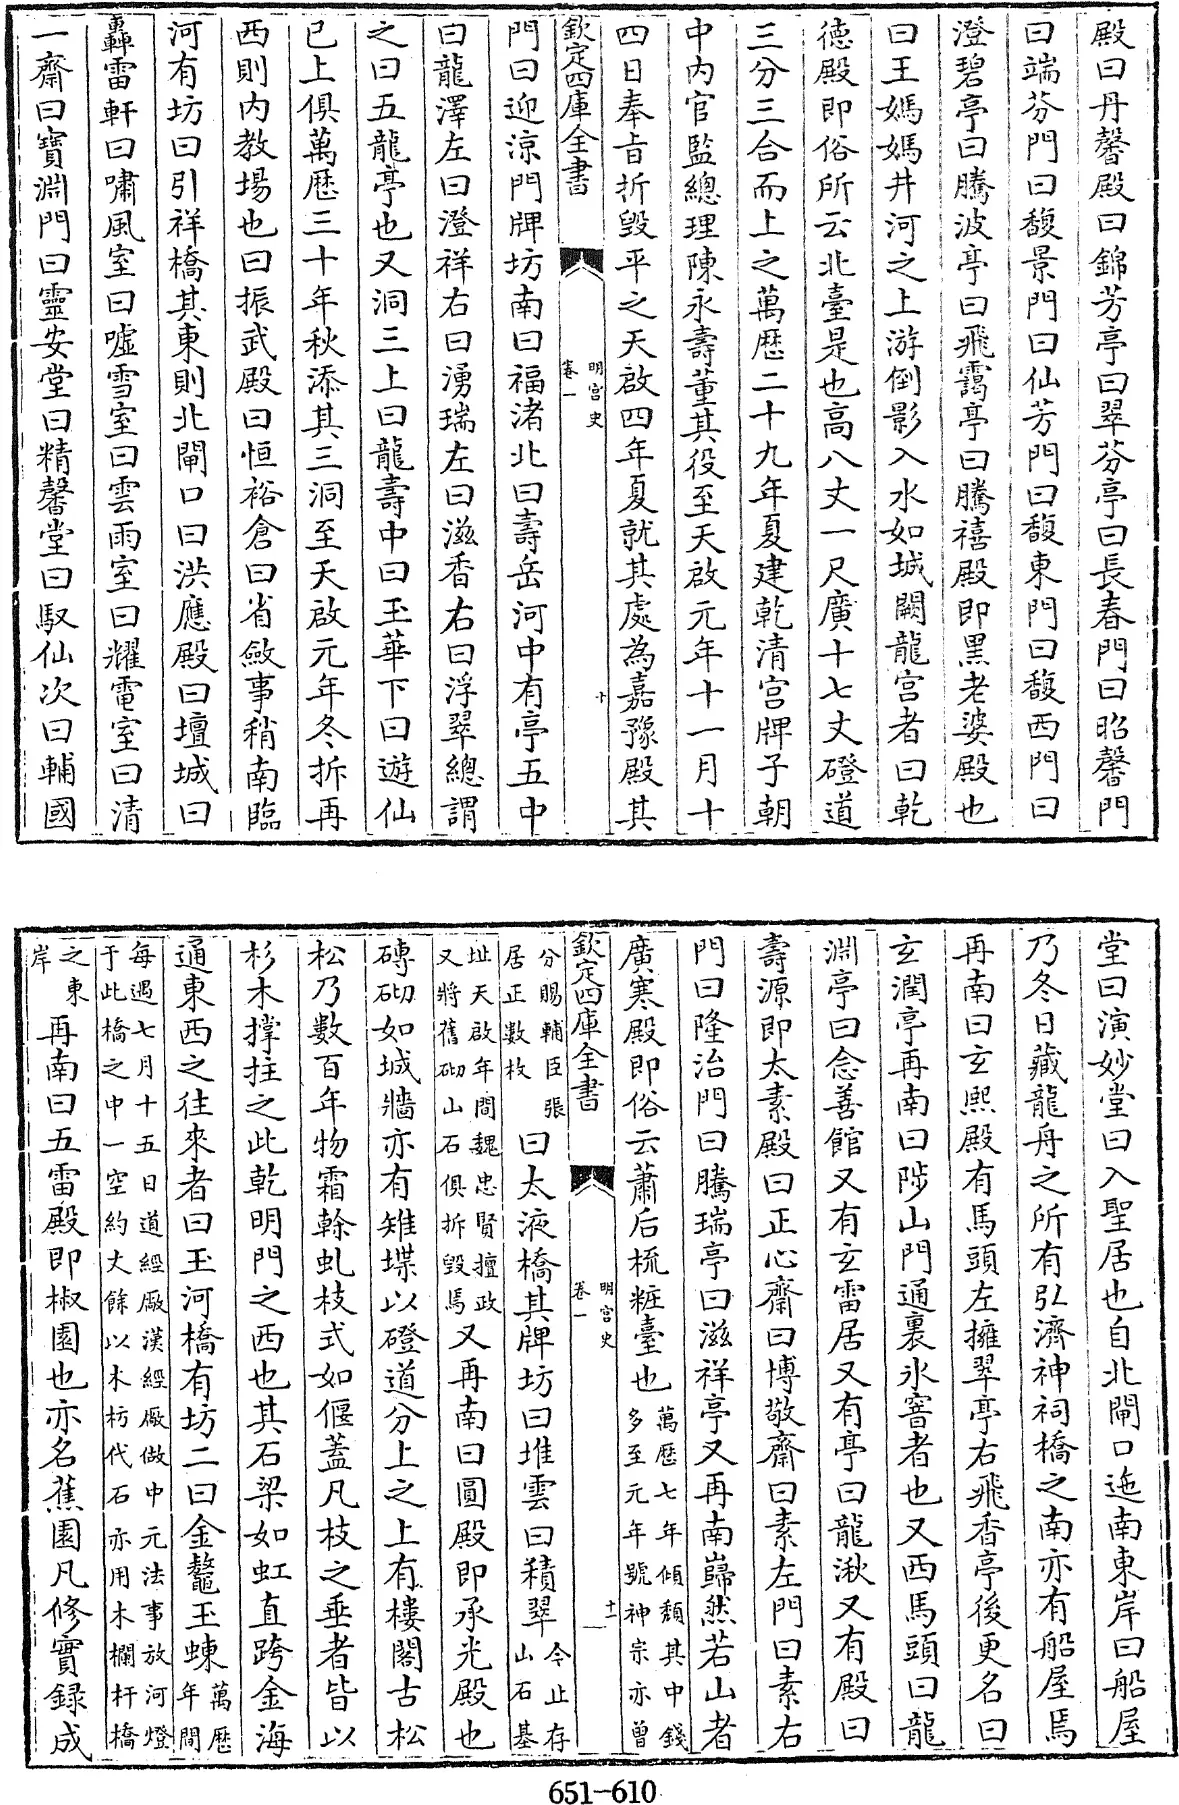 殿曰丹馨殿曰錦芳亭曰翠芬亭曰長春門曰昭馨門
曰端芬門曰馥景門曰仙芳門曰馥東門曰馥西門曰
澄碧亭曰騰波亭曰飛靄亭曰騰禧殿即黑老婆殿也
曰王媽媽井河之上游倒影入水如城闕龍宮者曰乾
德殿即俗所云北臺是也高八丈一尺廣十七丈磴道
三分三合而上之萬厯二十九年夏建乾清宮牌子朝
中内官監總理陳永壽董其役至天啟元年十一月十
四日奉㫖折毀平之天啟四年夏就其處為嘉豫殿其
欽定四庫全書
明宫史
卷一
十
門曰迎涼門牌坊南曰福渚北曰壽岳河中有亭五中
曰龍澤左曰澄祥右曰湧瑞左曰滋香右曰浮翠總謂
之曰五龍亭也又洞三上曰龍壽中曰玉華下曰遊仙
已上俱萬厯三十年秋添其三洞至天啟元年冬拆再
西則内教場也曰振武殿曰恒裕倉曰省斂事稍南臨
河有坊曰引祥橋其東則北閘口曰洪應殿曰壇城曰
轟雷軒曰嘯風室曰噓雪室曰雲雨室曰耀電室曰清
一齋曰寶淵門曰靈安堂曰精馨堂曰馭仙次曰輔國
堂曰演妙堂曰入聖居也自北閘口迤南東岸曰船屋
乃冬日藏龍舟之所有引濟神祠橋之南亦有船屋焉
再南曰玄熙殿有馬頭左擁翠亭右飛香亭後更名曰
玄潤亭再南曰陟山門通裏氷窖者也又西馬頭曰龍
淵亭曰念善館又有玄雷居又有亭曰龍湫又有殿曰
壽源即太素殿曰正心齋曰博敬齋曰素左門曰素右
門曰隆治門曰騰瑞亭曰滋祥亭又再南巋然若山者
廣寒殿即俗云蕭后梳粧臺也萬厯七年傾頽其中錢
多至元年號神宗亦曾
欽定四庫全書
明宫史
卷一
十一
分賜輔臣張
居正數枚曰太液橋其牌坊曰堆雲曰積翠今止存
山石基
址天啟年間魏忠賢擅政
又將舊砌山石俱拆毀焉又再南曰圓殿即承光殿也
磚砌如城牆亦有雉堞以磴道分上之上有樓閣古松
松乃數百年物霜榦虬枝式如偃蓋凡枝之垂者皆以
杉木撑拄之此乾明門之西也其石梁如虹直跨金海
通東西之往來者曰玉河橋有坊二曰金鼇玉蝀萬厯
年間
每遇七月十五日道經厰漢經厰做中元法事放河燈
于此橋之中一空約丈餘以木枋代石亦用木欄杆橋
之東
岸再南曰五雷殿即椒園也亦名蕉園凡修實録成
651-610